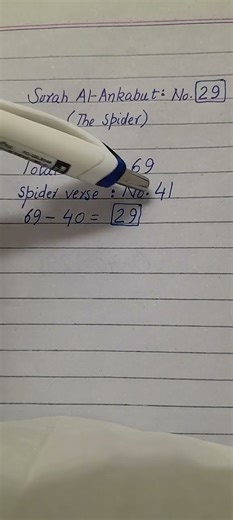 Surah Al-Ankabut: No. 29
(The Spider)
Total 69
Spider verse : No. 41
69 - 40 = 29